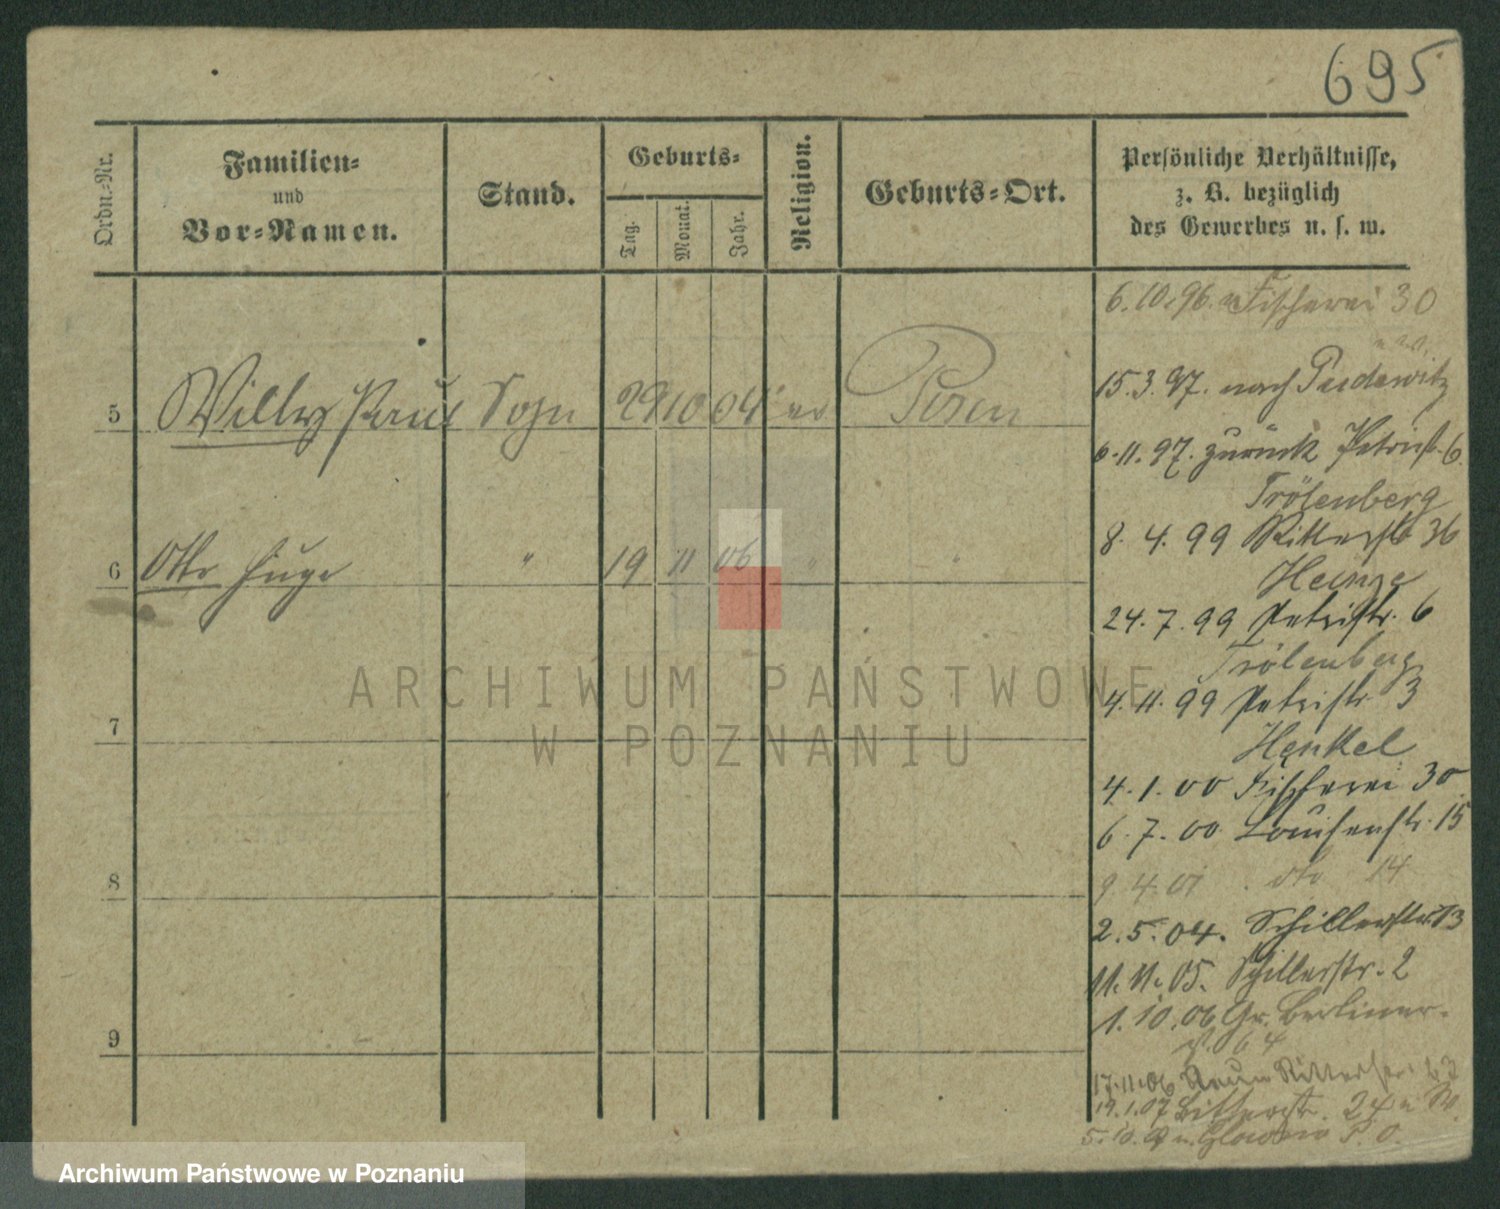 695
Ordn.-Nr.
Familien-
und
Vor-Namen.
Stand.
Geburts-
Tag.
Monat.
Jahr.
Religion.
Geburts-Ort.
Persönliche Verhältnisse,
z. B. bezüglich
des Gewerbes u. s. w.
6.10.96. Fischerei 30
15.3.97. nach Pudewitz
5 Willy Paul Sohn 29 10 04 ev Posen
6.11.97. zurück Petristr. 6
Trölenberg
8. 4. 99 Ritterstr 36
6 Otto Hugo " 19 11 06 " "
Heinze
24. 7. 99 Petristr. 6
Trölenberg
4. 11. 99 Petristr. 3
7
Henkel
4. 1. 00 Fischerei 30
6. 7. 00 Louisenstr. 15
8
9. 4. 01 dto 14
2. 5. 04. Schillerstr. 13
11. 11. 05. Schillerstr. 2
1. 10. 06 Gr. Berliner-
64
9
17.11.06 Neue Ritterstr.
19.1.07 24
5.10. n. Glowno P. O.
ARCHIWUM PAŃSTWOWE
W POZNANIU
Archiwum Państwowe w Poznaniu